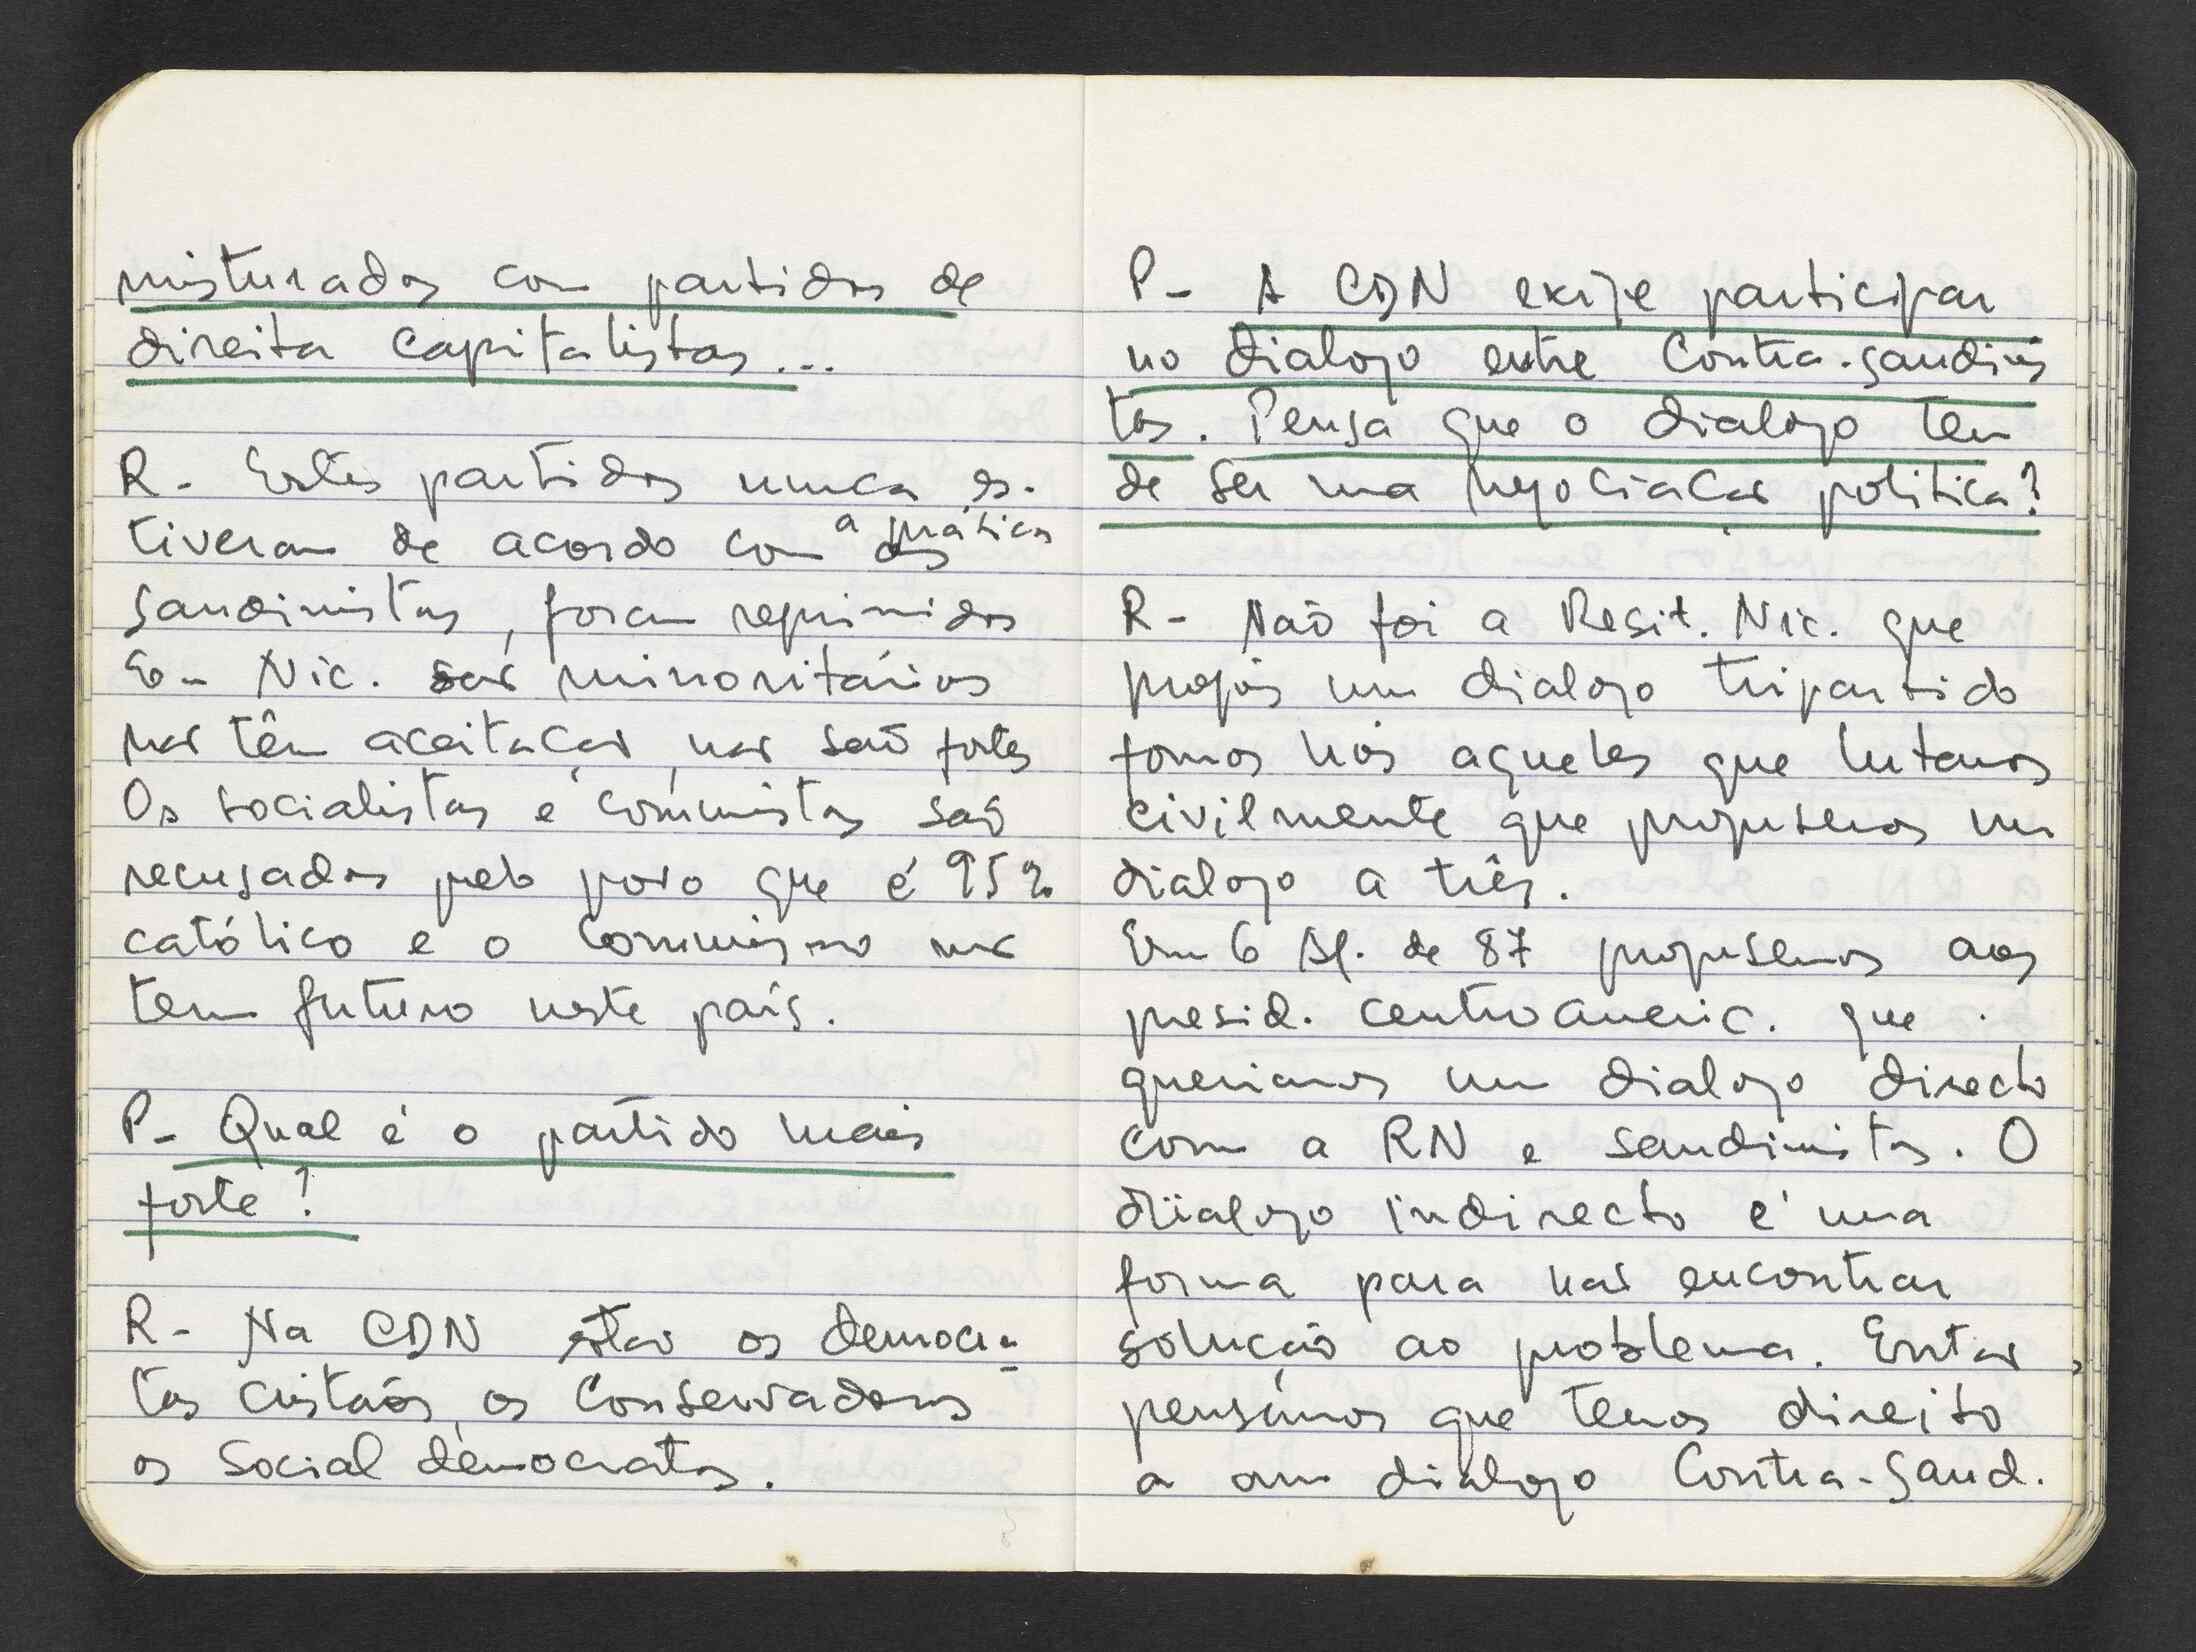 misturados com partidos de
direita capitalistas...
R- Estes partidos nunca es-
tiveram de acordo com a prática dos
sandinistas, foram reprimidos
Em Nic. são minoritários
não têm aceitação, não são fortes
Os socialistas e comunistas são
recusados pelo povo que é 95%
católico e o comunismo não
tem futuro neste país.
P- Qual é o partido mais
forte?
R- Na CDN estão os democra-
tas cristãos, os conservadores
os Social democratas.
P- A CDN exige participar
no dialogo entre Contra-sandinis
tas. Pensa que o dialogo tem
de ser uma negociação politica?
R- Não foi a Resit. Nic. que
propôs um dialogo tripartido
fomos nós aqueles que lutamos
civilmente que propusemos um
dialogo a três.
Em 6 Ag. de 87 propusemos aos
presid. centroameric. que
queriamos um dialogo directo
com a RN e sandinistas. O
dialogo indirecto é uma
forma para não encontrar
solução ao problema. Então,
pensámos que temos direito
a um dialogo Contra-Sand.